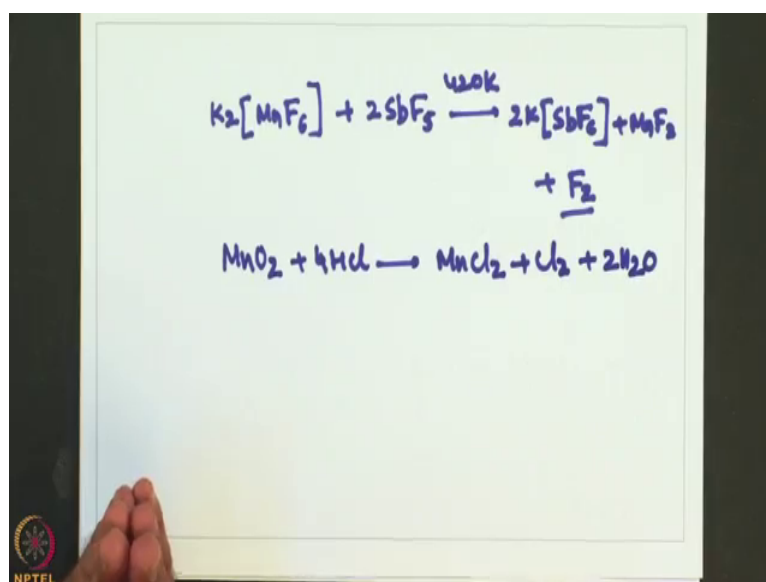 420K
K2[MnF6] + 2SbF5 ⟶ 2K[SbF6] + MnF2
+ F2
MnO2 + 4HCl ⟶ MnCl2 + Cl2 + 2H2O
NPTEL